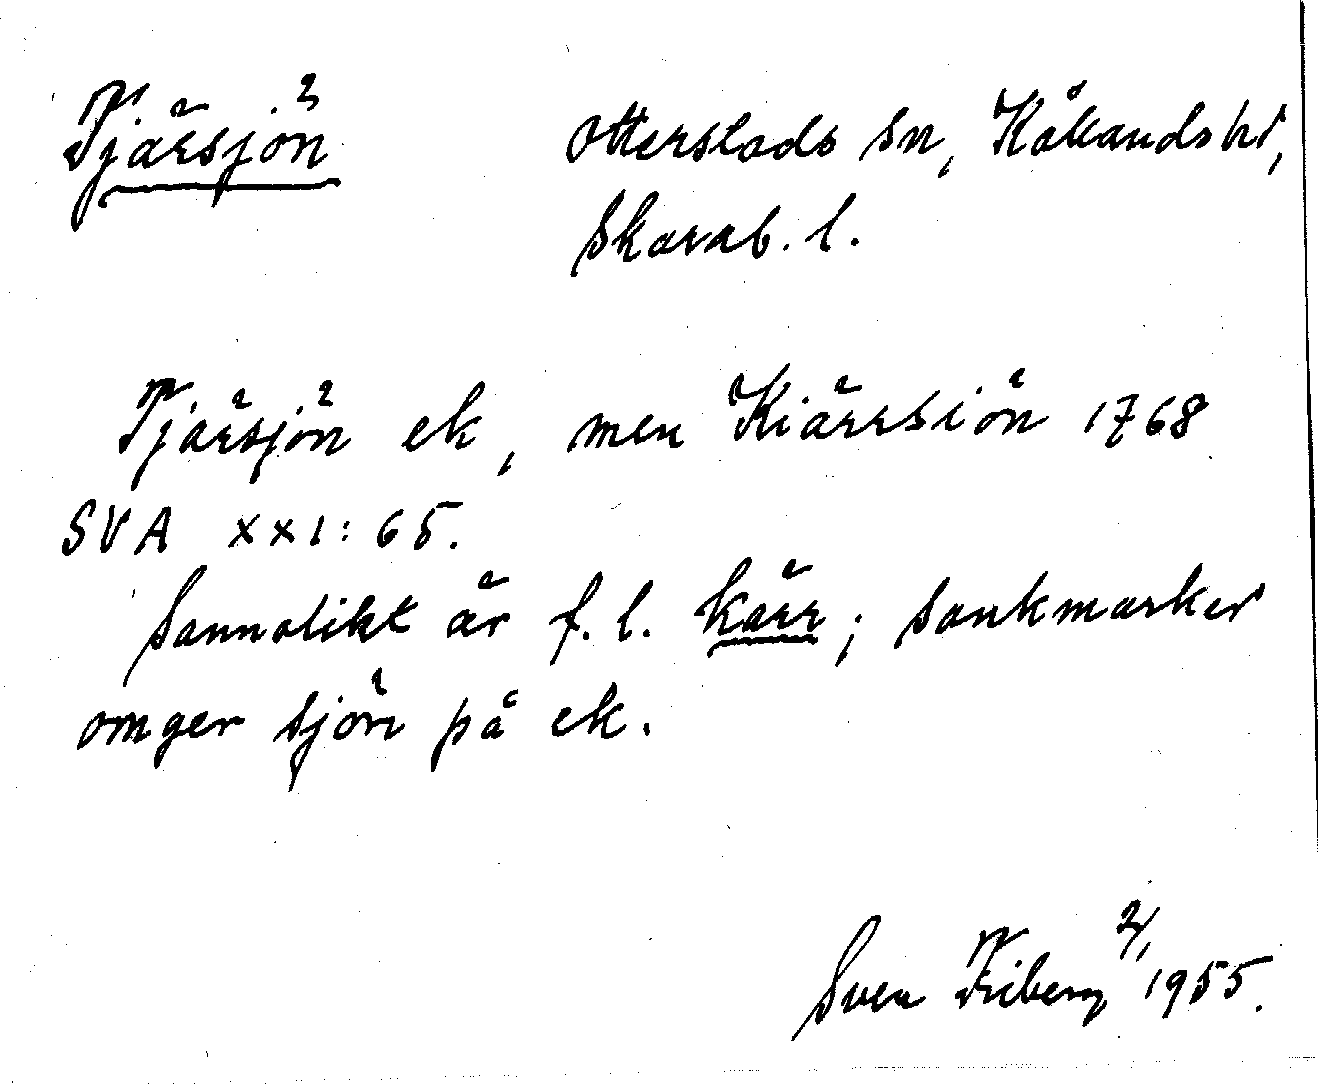 Tjärsjön Otterstads sn, Kålands hd,
Skarab. l.
Tjärsjön ek, men Kiärrsiön 1768
SVA XXI: 65.
Sannolikt är f. l. kärr; sankmarker
omger sjön på ek.
Sven Friberg 2/1 1955.